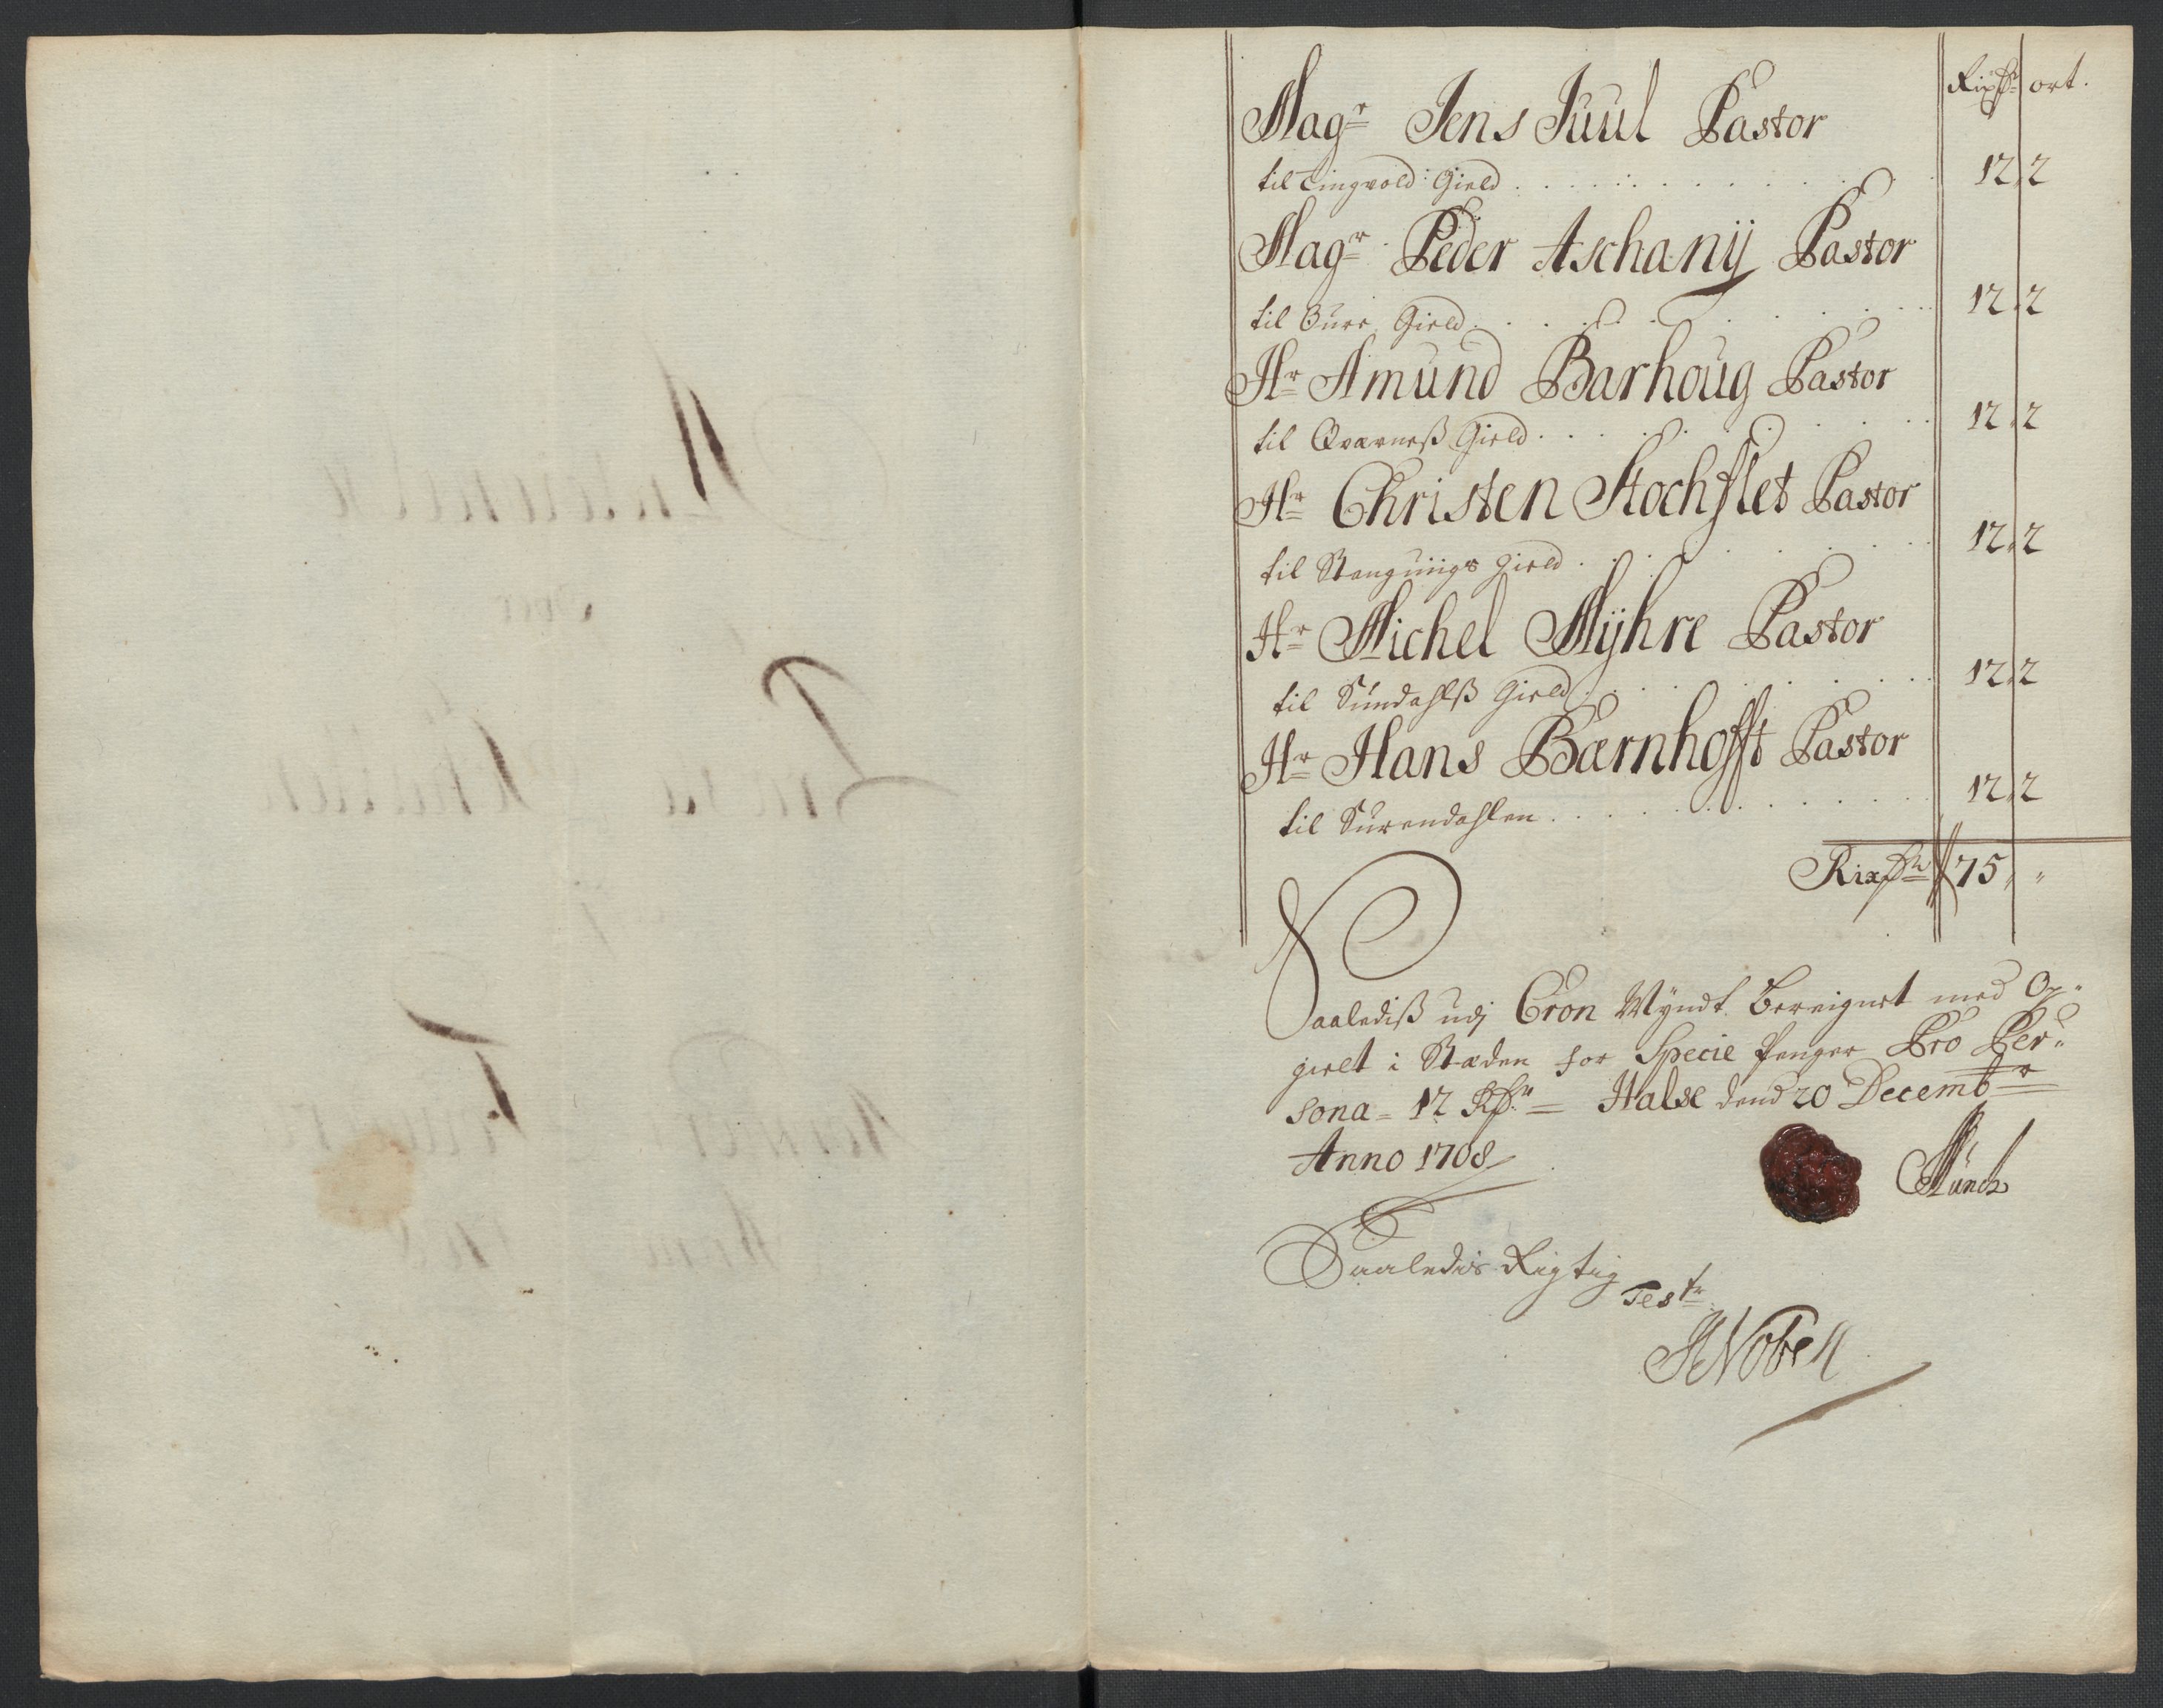 Rixdr ort.
Magr Jens Juul Pastor
til Tingvold: Gield . . . . . . . 12 2
Magr Peder Aschanÿ Pastor
til Øure Gield . . . . . . . 12 2
Hr Amund Barhoug Pastor
til Qværneß Gield . . . . . . . 12 2
Hr Christen Stochflet Pastor
til Stangviigs Gield . . . . . . . 12 2
Hr Michel Mÿhre Pastor
til Sundahlß Gield . . . . . . . 12 2
Hr Hans Bærnhofft Pastor
til Surendahlen . . . . . . . 12 2
Rixdr 75 „ „
Saalediß udj Cron Myndt Bereignet med Op„
gielt i Stæden for Specie Penger Pro Per„
sona = 12 Rdr = Halse dend 20 Decembr
Anno 1708
Münch
Saaledis Rigtig
Testr